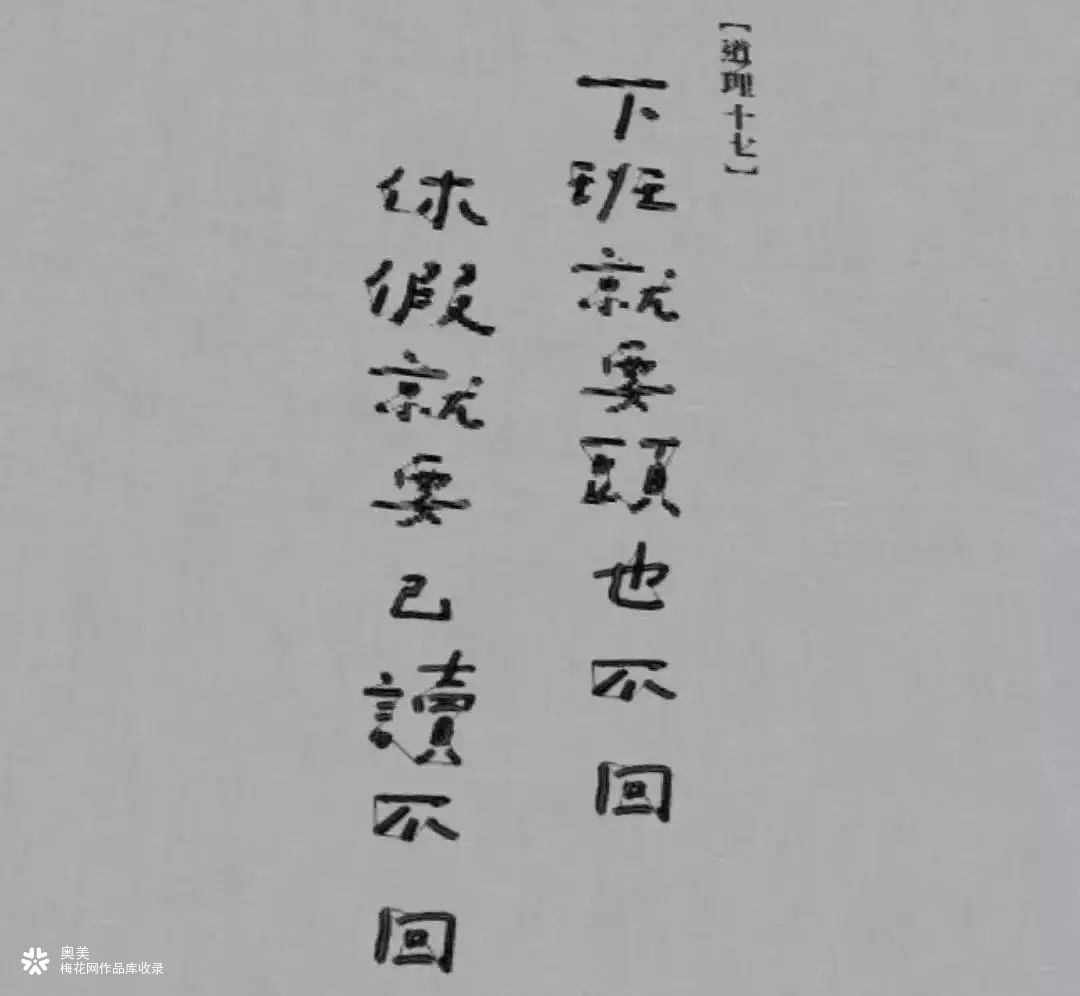 【道理十七】
下班就要頭也不回
休假就要已讀不回
奥美
梅花网作品库收录